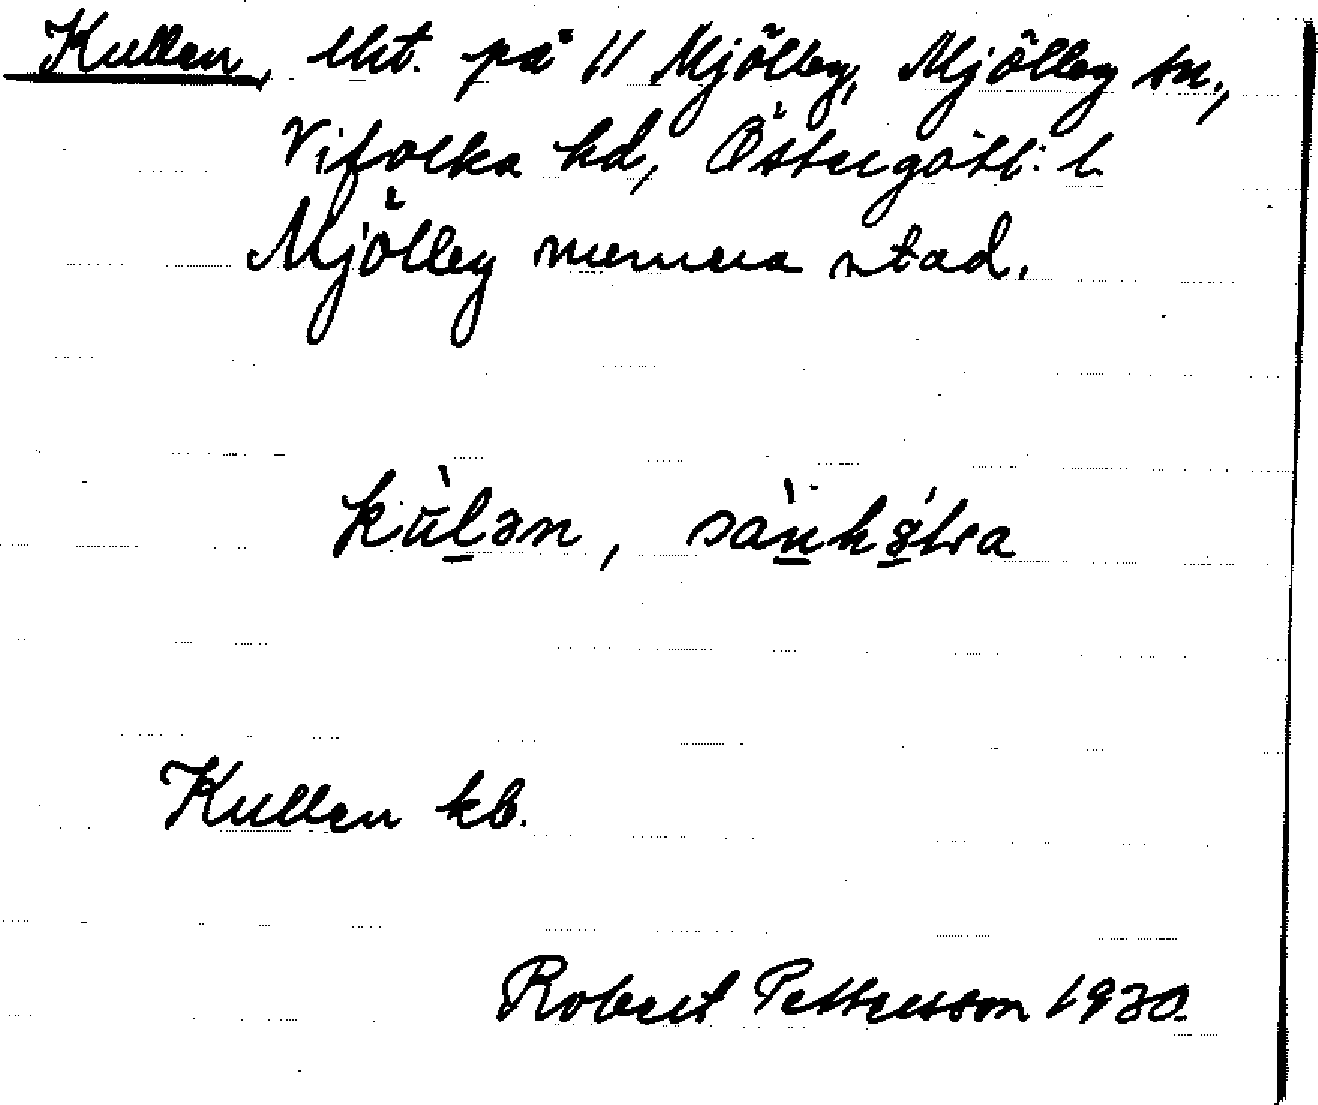 Kullen, lht. på 11 Mjölby, Mjölby sn.,
Vifolka hd, Östergötl: l.
Mjölby numera stad.
kùlən, sànkstra
Kullen kb.
Robert Pettersson 1930.